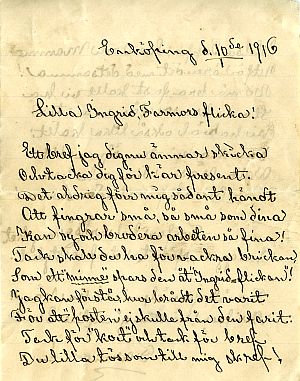 Enköping d. 10de/1 1916
Lilla Ingrid, Farmors flicka!
Ett bref jag dig nu ämnar skicka
Och tacka dig för kär present.
Det aldrig för mig sådant händt
Att fingrar små, så små som dina
Kan sy och brodera arbeten så fina!
Tack skall du ha för vackra brickan
Som ett "minne" spars den åt "Ingrid-flickan"!
Jag kan förstå, hur brådt det varit
För att "posten" ej skulle från den farit.
Tack för "kort" och tack för bref
Du lilla töss som till mig skref,